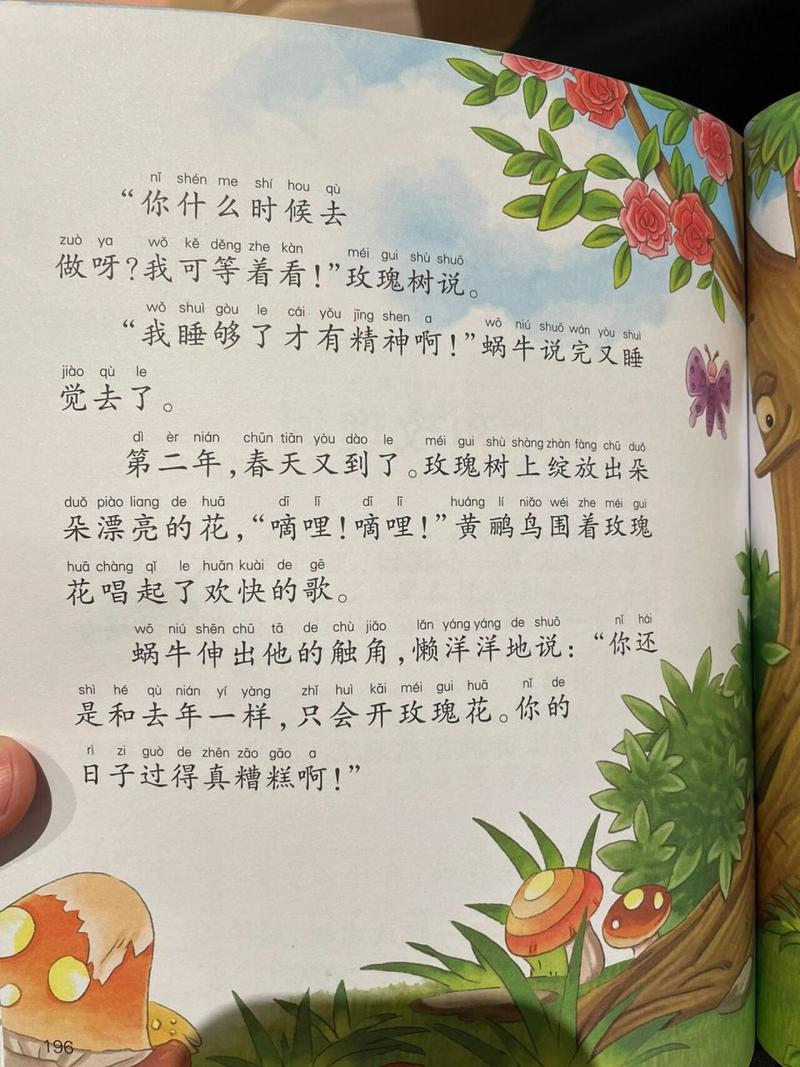 nǐ shén me shí hou qù
“你什么时候去
zuò ya wǒ kě děng zhe kàn méi gui shù shuō
做呀？我可等着看！”玫瑰树说。
wǒ shuì gòu le cái yǒu jīng shen a wō niú shuō wán yòu shuì
“我睡够了才有精神啊！”蜗牛说完又睡
jiào qù le
觉去了。
dì èr nián chūn tiān yòu dào le méi gui shù shàng zhàn fàng chū duǒ
第二年，春天又到了。玫瑰树上绽放出朵
duǒ piào liang de huā dī lī dī lī huáng lí niǎo wéi zhe méi gui
朵漂亮的花，“嘀哩！嘀哩！”黄鹂鸟围着玫瑰
huā chàng qǐ le huān kuài de gē
花唱起了欢快的歌。
wō niú shēn chū tā de chù jiǎo lǎn yáng yáng de shuō nǐ hái
蜗牛伸出他的触角，懒洋洋地说：“你还
shì hé qù nián yí yàng zhǐ huì kāi méi gui huā nǐ de
是和去年一样，只会开玫瑰花。你的
rì zi guò de zhēn zāo gāo a
日子过得真糟糕啊！”
196